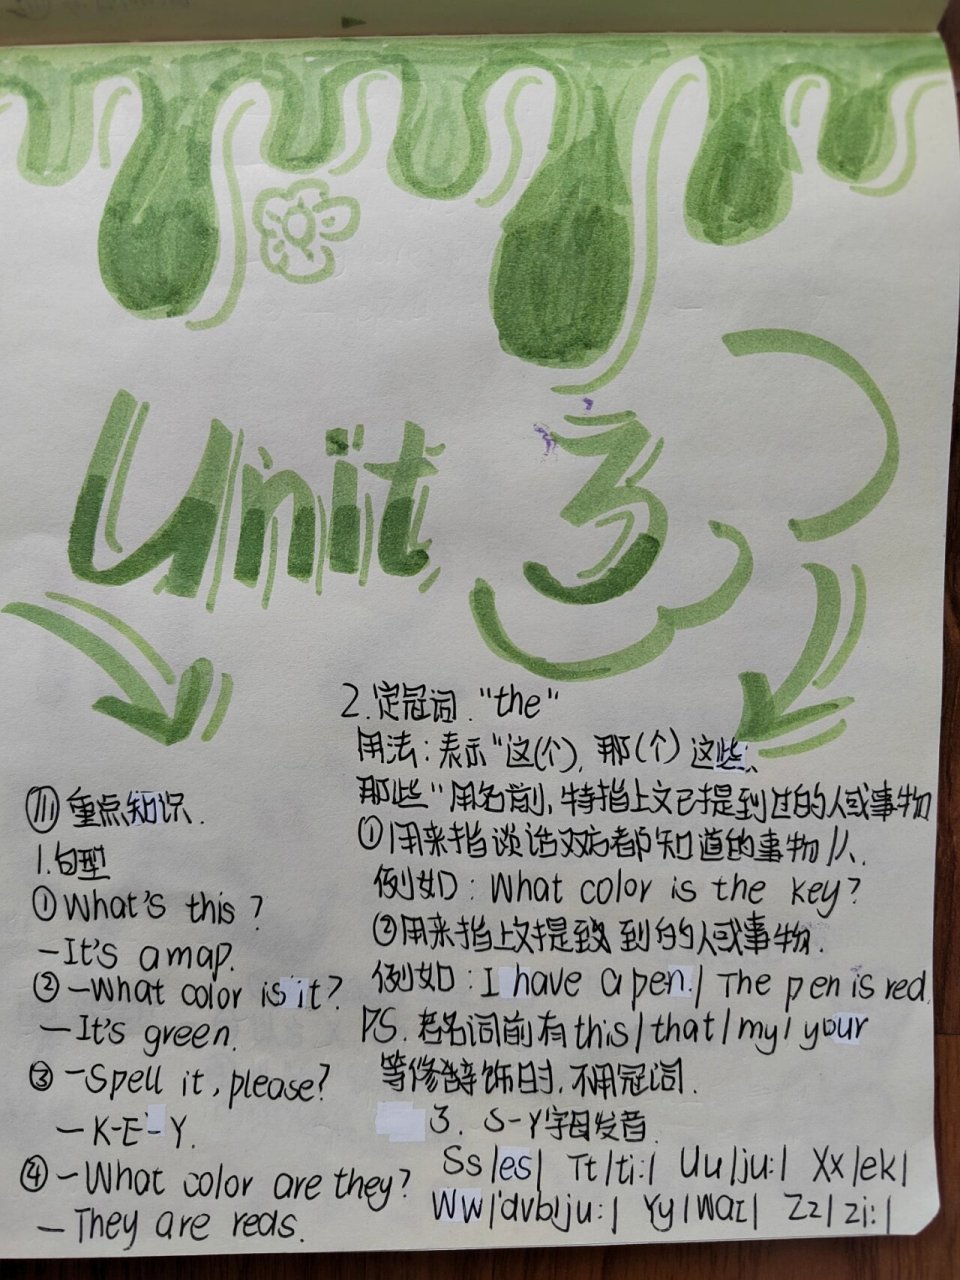 Unit 3
Ⅲ 重点知识.
1.句型
①What's this?
-It's a map.
②-What color is it?
-It's green.
③-Spell it, please?
-K-E-Y.
④-What color are they?
-They are reds.
2.定冠词."the"
用法:表示"这(个),那(个)这些、
那些"用名前,特指上文已提到过的人或事物
①用来指谈话双方都知道的事物/人.
例如:What color is the key?
②用来指上文提到的人或事物.
例如:I have a pen./ The pen is red.
PS.若名词前有this/that/my/your
等修饰时,不用冠词.
3. S-Y字母发音
Ss/es/ Tt/ti:/ Uu/ju:/ Xx/ek/
Ww/'dvblju:/ Yy/waɪ/ Zz/zi:/